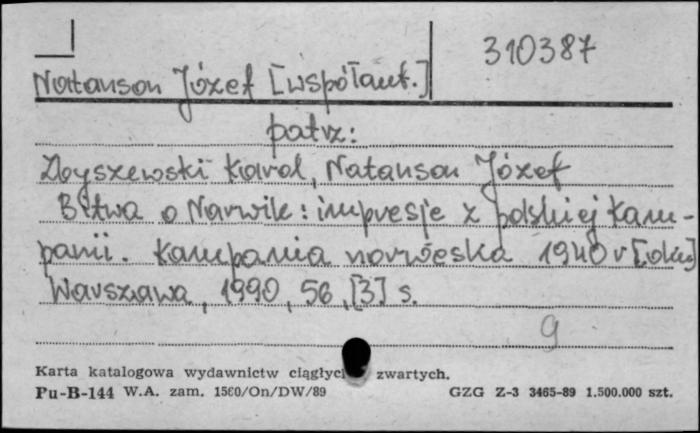 310387
Natanson Józef [współaut.]
patrz:
Zbyszewski Karol, Natanson Józef
Bitwa o Narwik: impresje z polskiej kam-
panii. Kampania norweska 1940 r [okł]
Warszawa, 1990, 56, [3] s.
g
Karta katalogowa wydawnictw ciągłyc zwartych.
Pu-B-144 W.A. zam. 1560/On/DW/89 GZG Z-3 3465-89 1.500.000 szt.